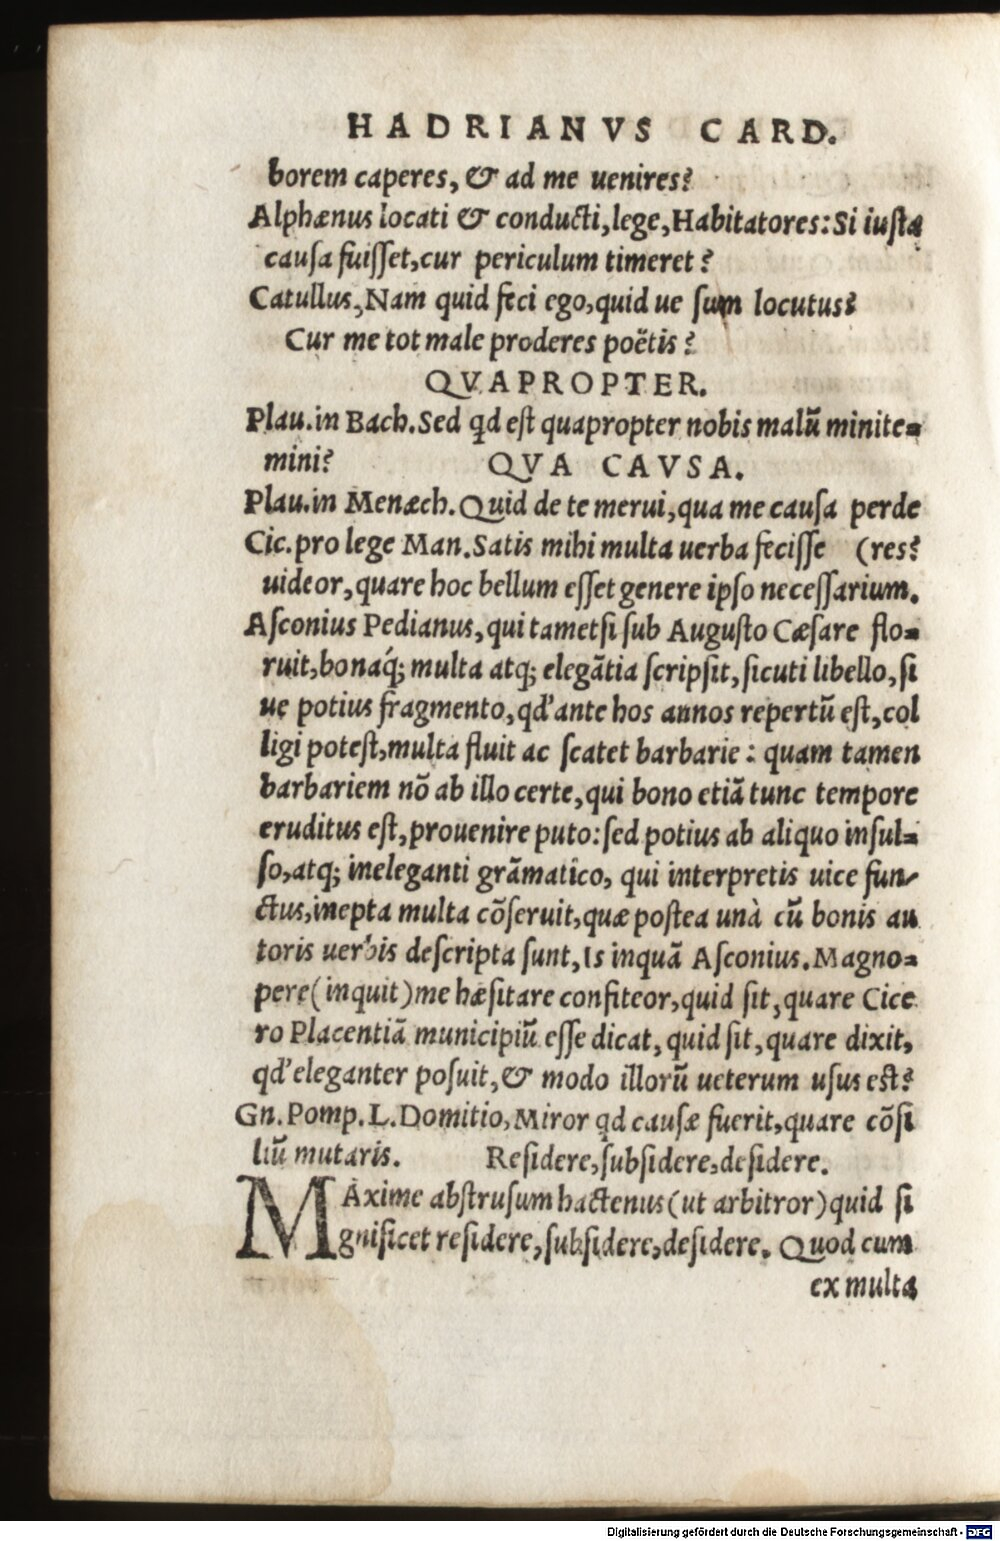 HADRIANVS CARD.
borem caperes, & ad me uenires?
Alphænus locati & conducti, lege, Habitatores: Si iusta
causa fuisset, cur periculum timeret?
Catullus, Nam quid feci ego, quid ue sum locutus?
Cur me tot male proderes poëtis?
QVAPROPTER.
Plau. in Bach. Sed qd est quapropter nobis malũ minite-
mini? QVA CAVSA.
Plau. in Menæch. Quid de te merui, qua me causa perde
Cic. pro lege Man. Satis mihi multa uerba fecisse (res?
uideor, quare hoc bellum esset genere ipso necessarium.
Asconius Pedianus, qui tametsi sub Augusto Cæsare flo-
ruit, bonaq́; multa atq; elegãtia scripsit, sicuti libello, si
ue potius fragmento, qd' ante hos annos repertũ est, col
ligi potest, multa fluit ac scatet barbarie: quam tamen
barbariem nõ ab illo certe, qui bono etiã tunc tempore
eruditus est, prouenire puto: sed potius ab aliquo insul-
so, atq; ineleganti grãmatico, qui interpretis uice fun-
ctus, inepta multa cõseruit, quæ postea unà cũ bonis au
toris uerbis descripta sunt, Is inquã Asconius. Magno-
pere (inquit) me hæsitare confiteor, quid sit, quare Cice
ro Placentiã municipiũ esse dicat, quid sit, quare dixit,
qd' eleganter posuit, & modo illorũ ueterum usus est?
Gn. Pomp. L. Domitio, Miror qd causæ fuerit, quare cõsi
liũ mutaris. Residere, subsidere, desidere.
MAxime abstrusum hactenus (ut arbitror) quid si
gnificet residere, subsidere, desidere. Quod cum
ex multa
Digitalisierung gefördert durch die Deutsche Forschungsgemeinschaft - DFG